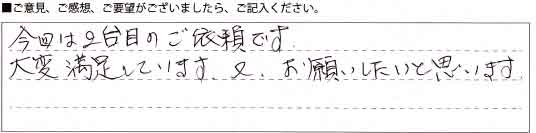 ■ご意見、ご感想、ご要望がございましたら、ご記入ください。
今回は2台目のご依頼です.
大変満足しています.又、お願いしたいと思います